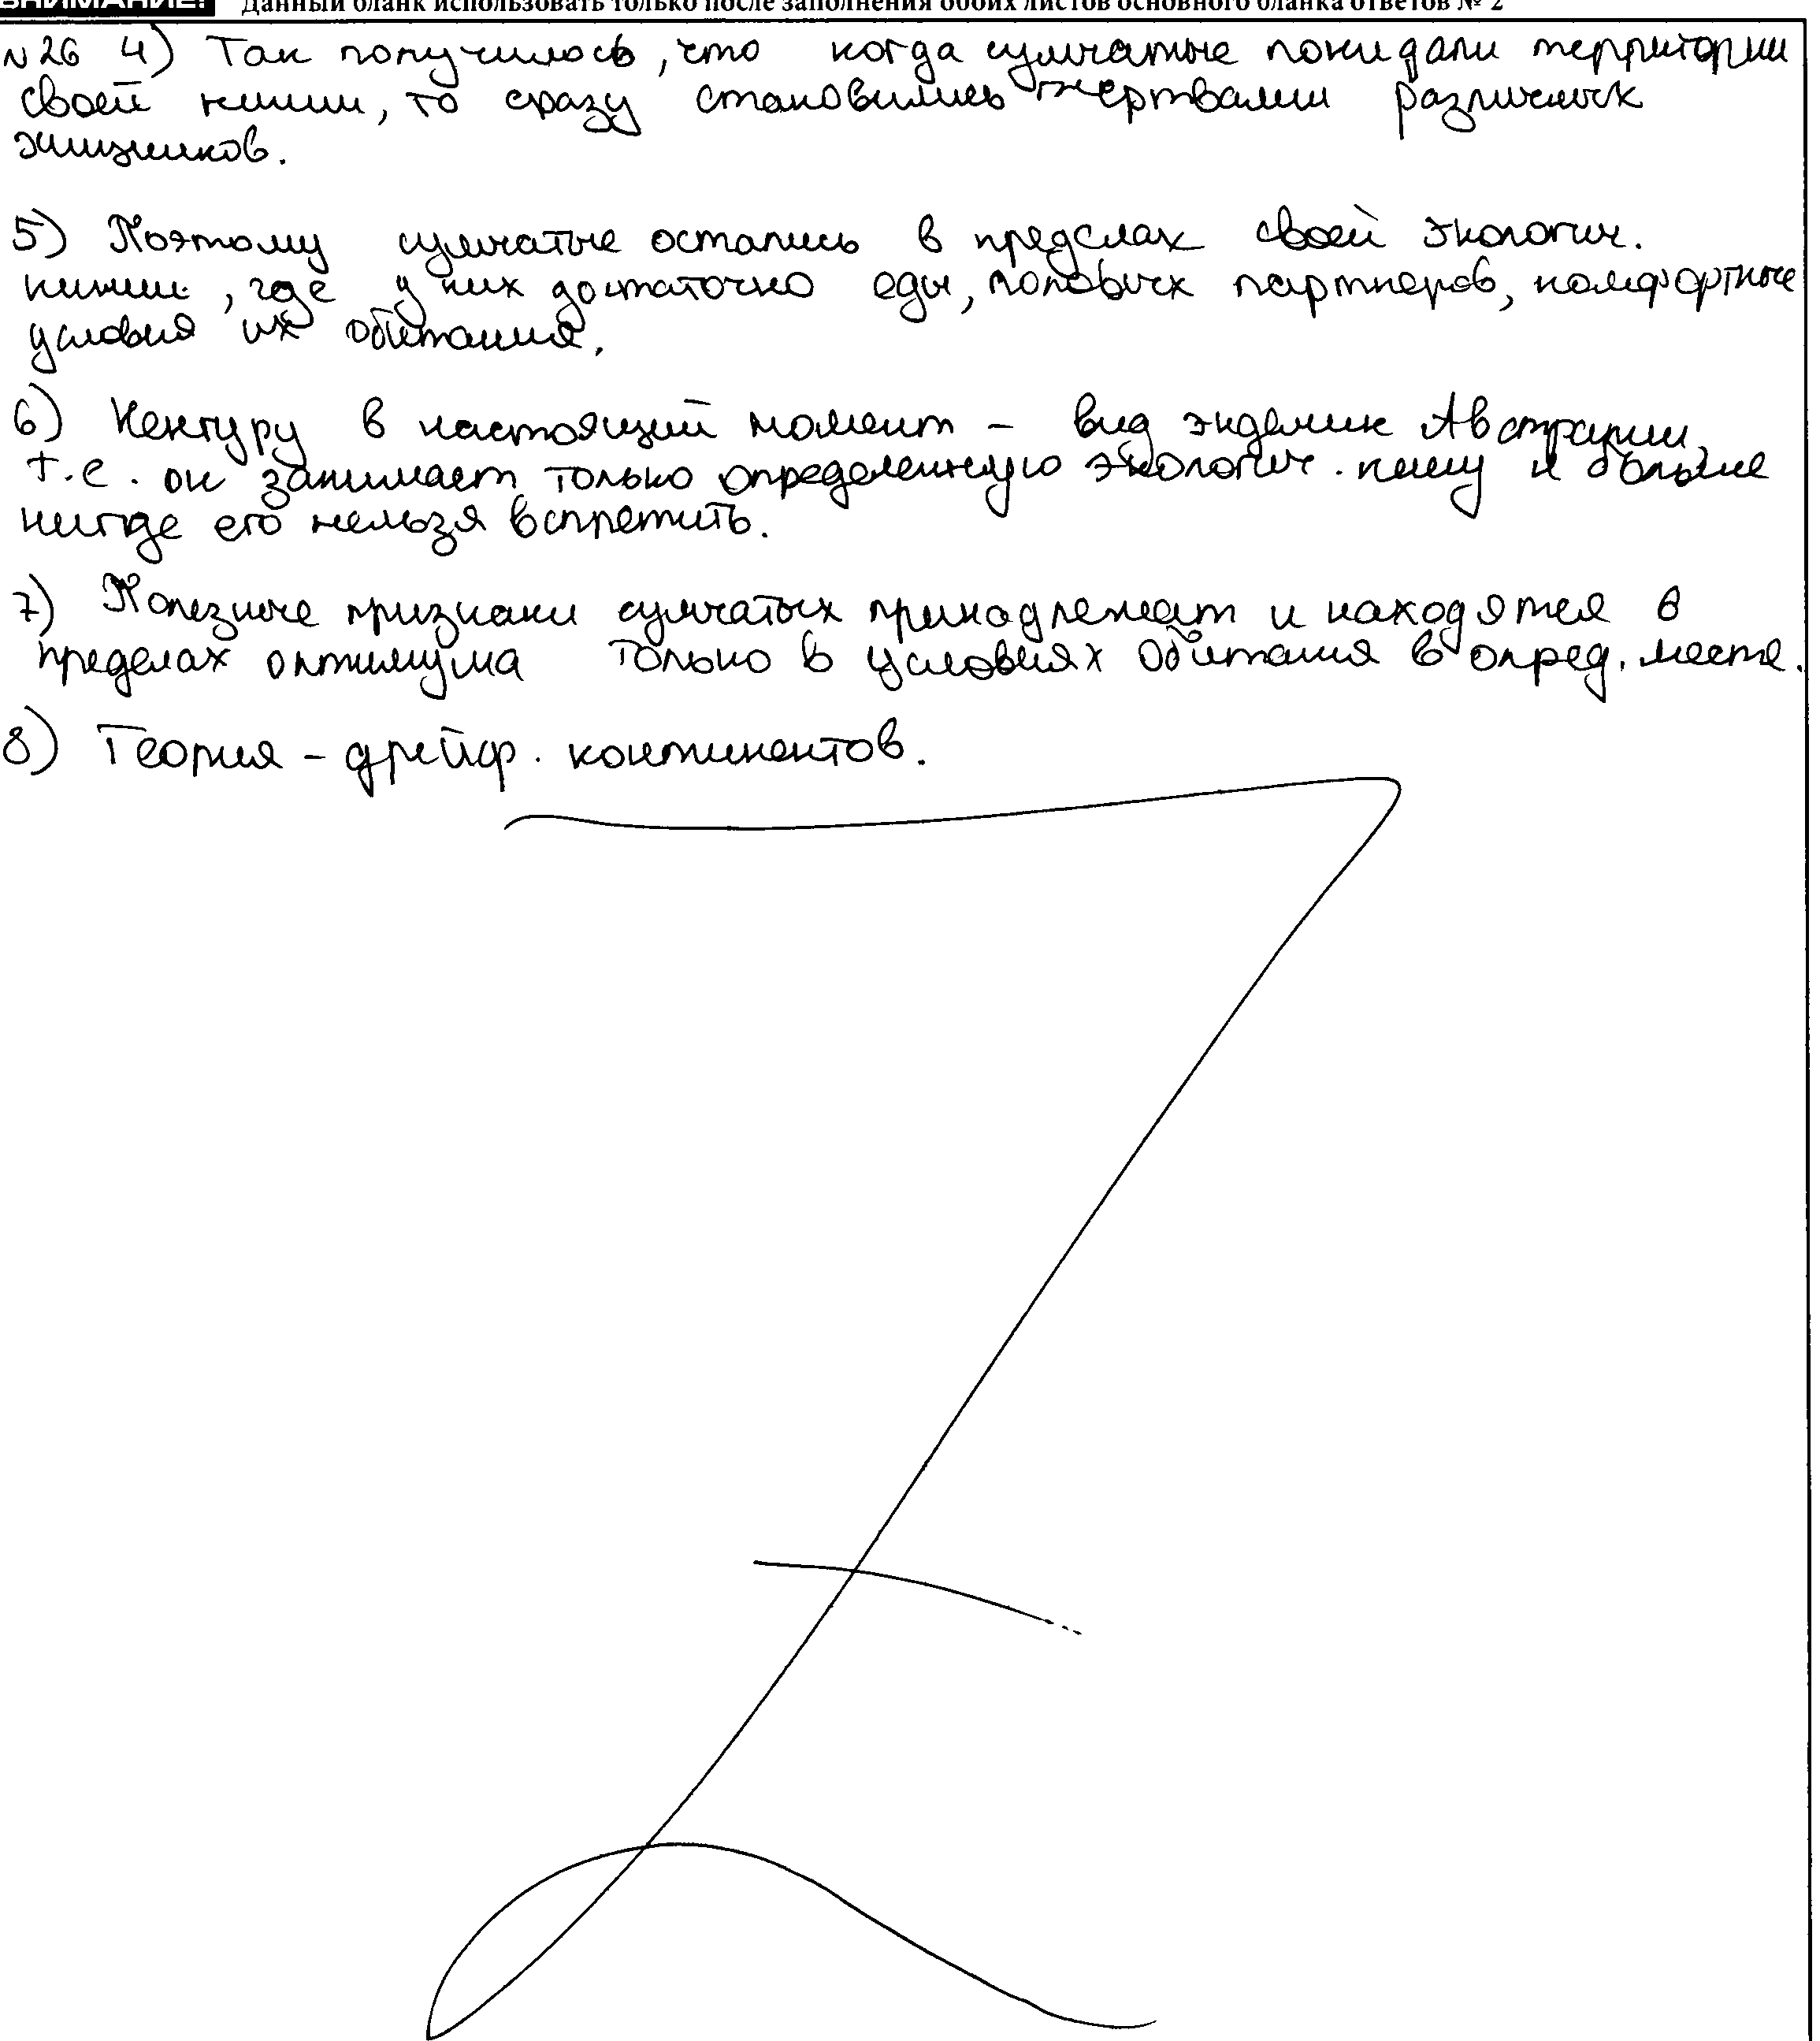 ВНИМАНИЕ! Данный бланк использовать только после заполнения обоих листов основного бланка ответов № 2
N26 4) Так получилось, что когда сумчатые покидали территории
своей ниши, то сразу становились жертвами различных
хищников.
5) Поэтому сумчатые остались в пределах своей экологич.
ниши, где у них достаточно еды, половых партнеров, комфортные
условия их обитания.
6) Кенгуру в настоящий момент – вид эндемик Австралии,
т.е. он занимает только определенную экологич. нишу и больше
нигде его нельзя встретить.
7) Полезные признаки сумчатых принадлежат и находятся в
пределах оптимума только в условиях обитания в опред. месте.
8) Теория – дрейф. континентов.